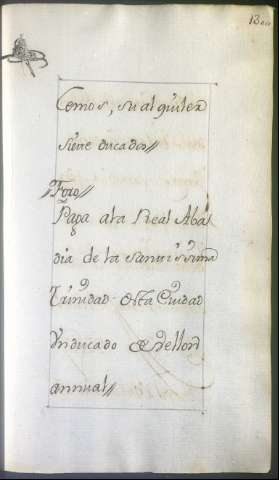 Cemos, su alquiler
siete ducados//
Foro//
Paga a la Real Aba
dia de la Santissima
Trinidad de esta Ciudad
Un ducado de Vellon
annual//